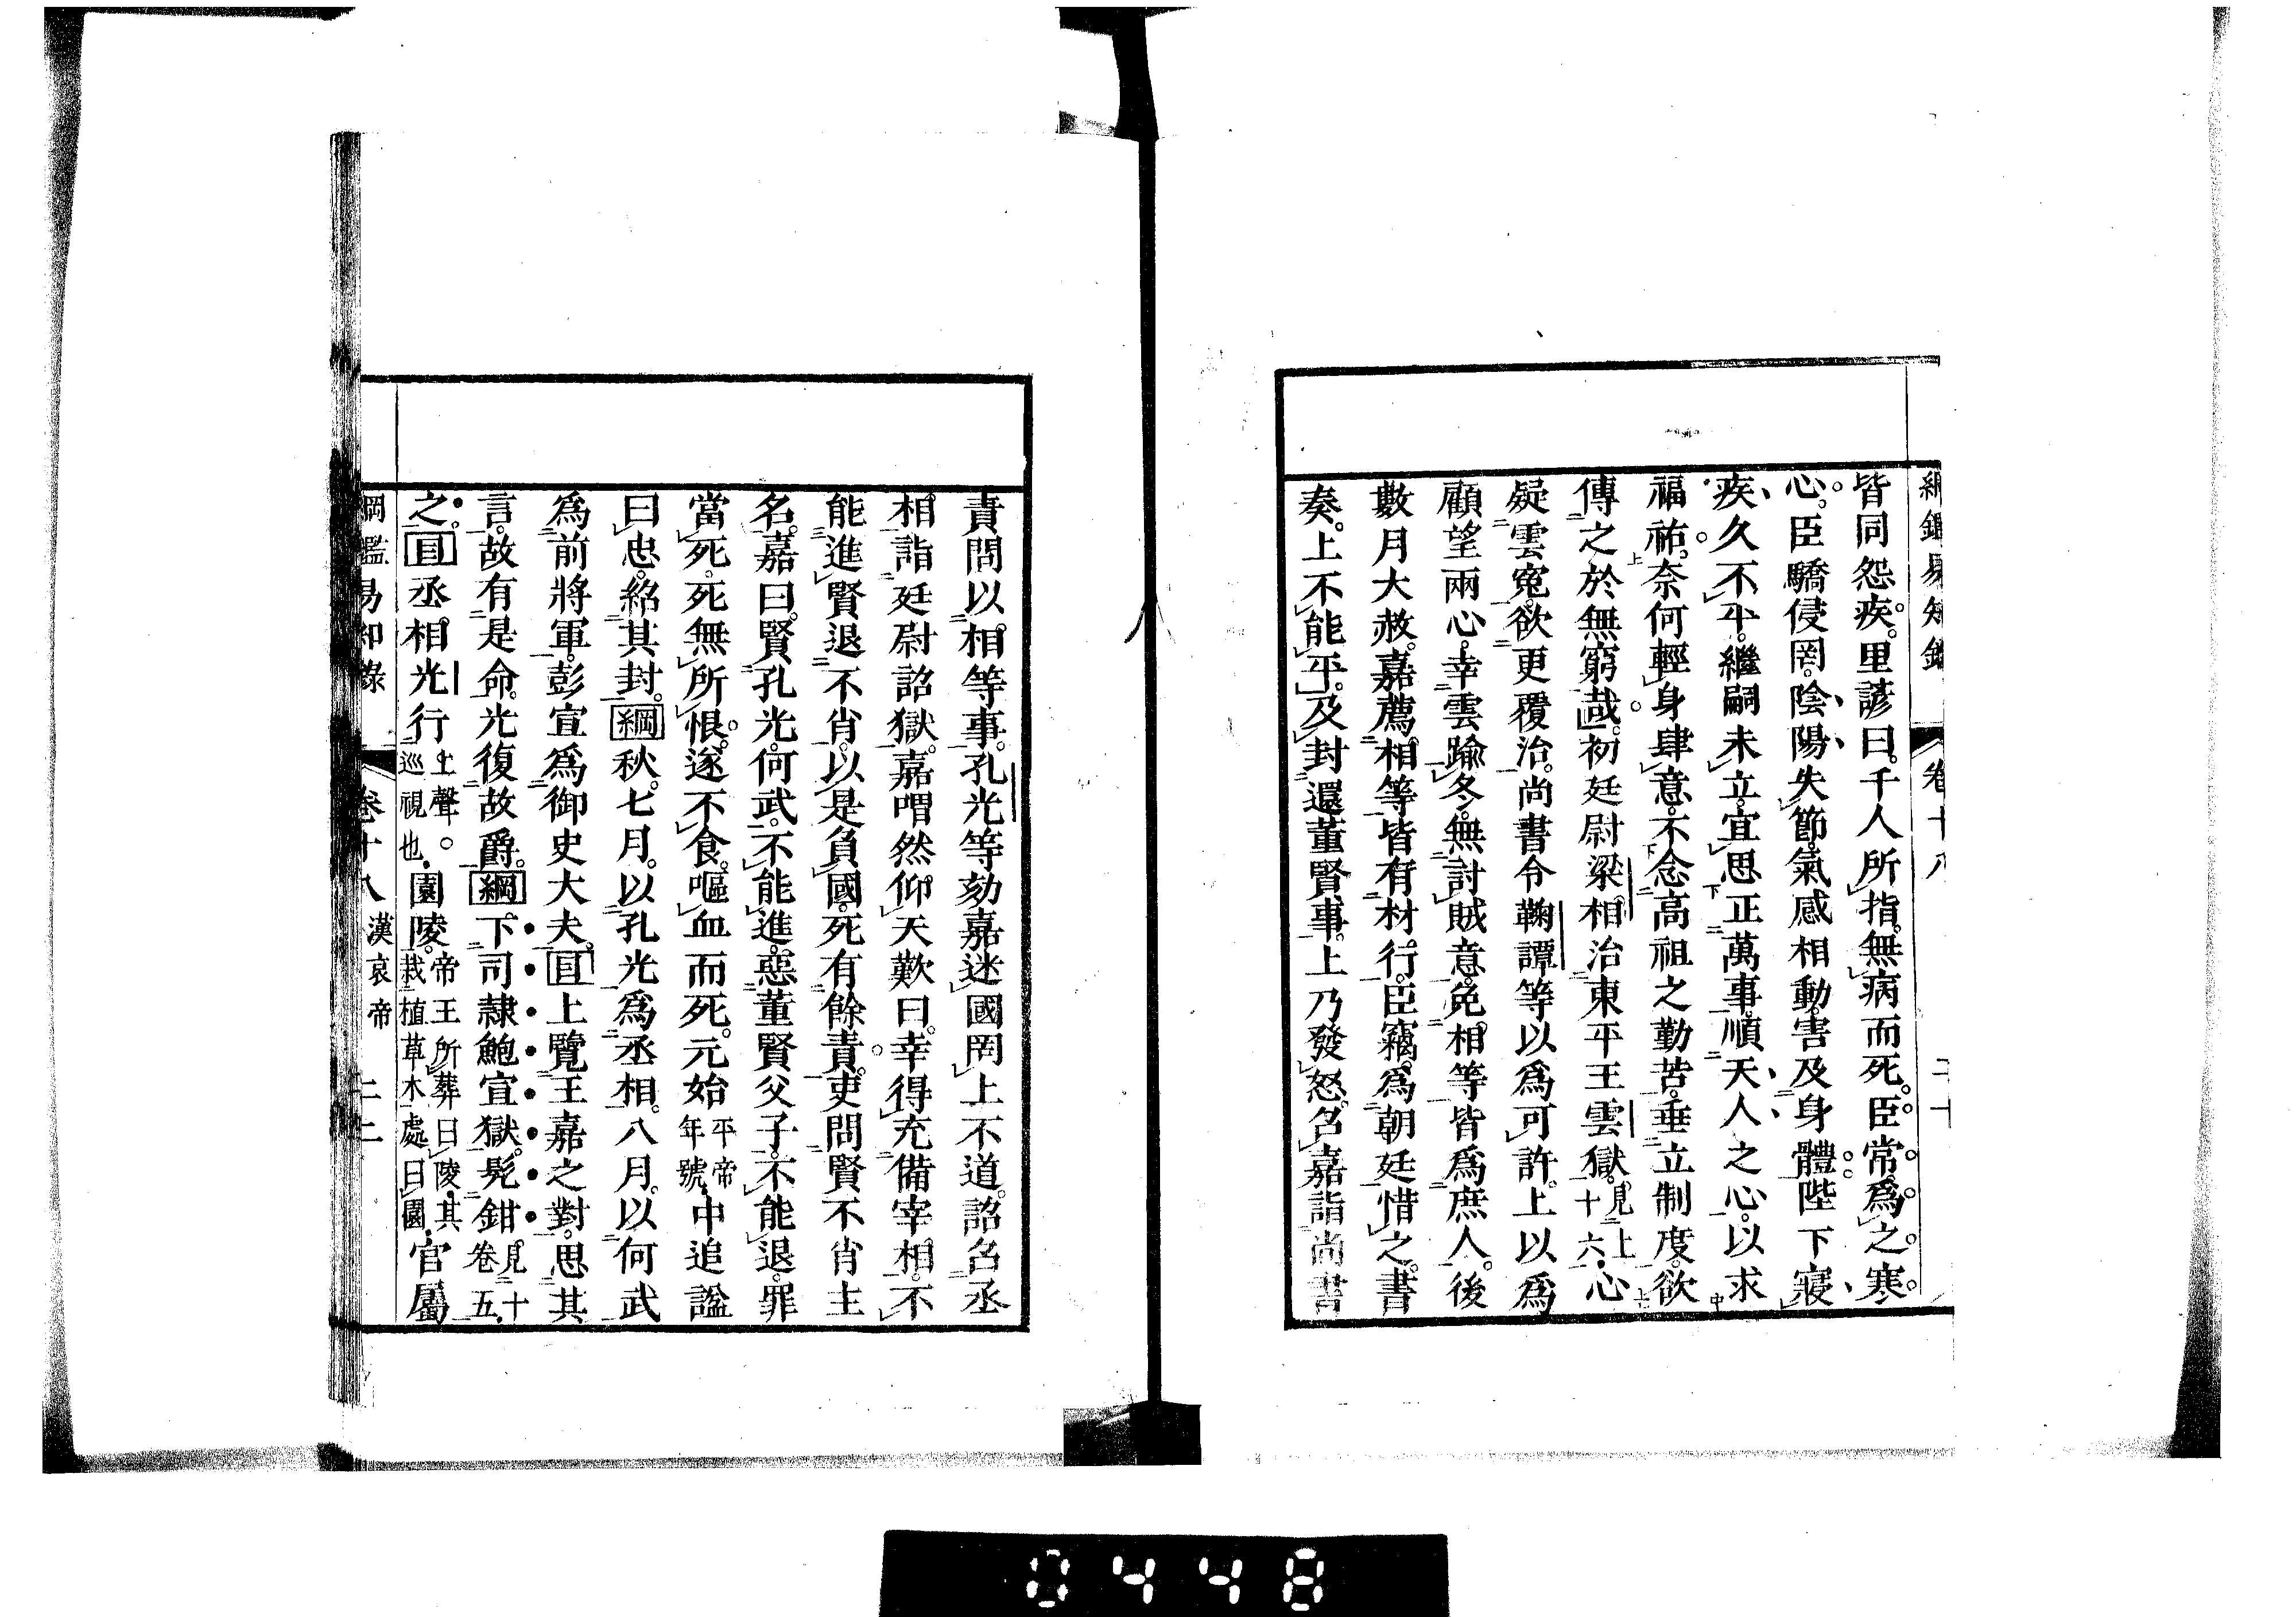 綱鑑易知錄 卷十八
皆同怨疾。里諺曰。千人所指。無病而死。臣常爲之寒
心。臣驕侵罔。陰陽失節。氣感相動。害及身體。陛下寢
疾久不平。繼嗣未立。宜思正萬事。順天人之心。以求
福祐。奈何輕身肆意。不念高祖之勤苦。垂立制度。欲
傳之於無窮哉。初廷尉梁相治東平王雲獄。見上十六。心
疑雲寃。欲更覆治。尚書令鞠譚等以爲可許。上以爲
顧望兩心。幸雲踰冬。無討賊意。免相等皆爲庶人。後
數月大赦。嘉薦相等皆有材行。臣竊爲朝廷惜之。書
奏。上不能平。及封還董賢事。上乃發怒。召嘉詣尚書
責問以相等事。孔光等劾嘉迷國罔上不道。詔召丞
相詣廷尉詔獄。嘉喟然仰天歎曰。幸得充備宰相。不
能進賢退不肖。以是負國。死有餘責。吏問賢不肖主
名。嘉曰。賢孔光。何武。不能進。惡董賢父子。不能退。罪
當死。死無所恨。遂不食。嘔血而死。元始平帝年號。中追謚
曰忠。紹其封。綱秋。七月。以孔光爲丞相。八月。以何武
爲前將軍。彭宣爲御史大夫。目上覽王嘉之對。思其
言。故有是命。光復故爵。綱下司隸鮑宣獄。髡鉗。見十卷五。
之。目丞相光行上聲。巡視也。園陵。帝王所葬曰陵。其栽植草木處曰園。官屬
綱鑑易知錄 卷十八 漢哀帝 二二
0448